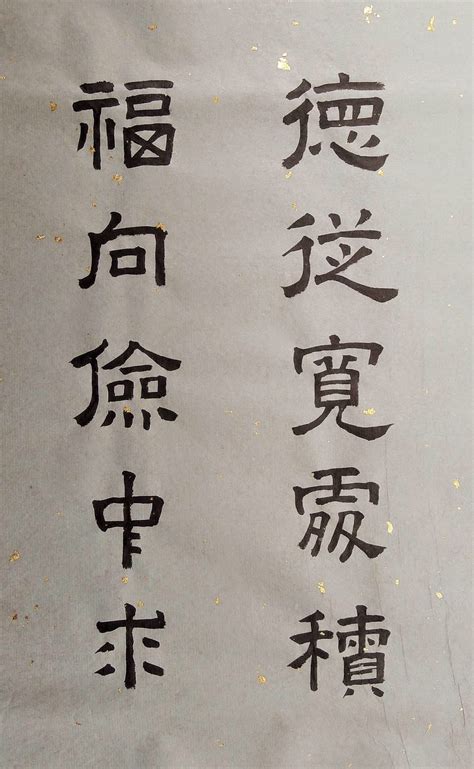 德從寬處積
福向儉中求